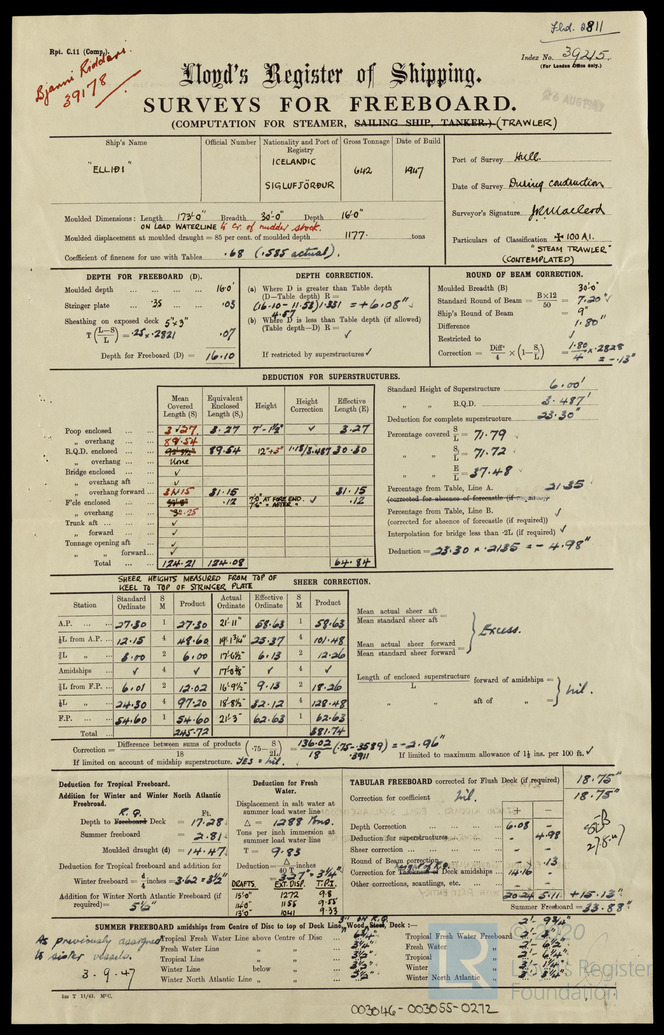 Fbd. 2811
Rpt. C.11 (Comp.).
Index No. 39215.
(For London Office only.)
Bjarni Riddari.
39178
Lloyd's Register of Shipping.
26 AUG 1947
SURVEYS FOR FREEBOARD.
(COMPUTATION FOR STEAMER, SAILING SHIP, TANKER.) (TRAWLER)
Ship's Name Official Number Nationality and Port of Registry Gross Tonnage Date of Build
"ELLIDI" ICELANDIC SIGLUFJÖRÐUR 642 1947
Port of Survey Hull.
Date of Survey During construction
Surveyor's Signature J.R. Macleod
Particulars of Classification +100 A1.
"STEAM TRAWLER"
(CONTEMPLATED)
Moulded Dimensions: Length 173'-0" Breadth 30'-0" Depth 16'-0"
ON LOAD WATERLINE to Cr. of rudder stock.
Moulded displacement at moulded draught = 85 per cent. of moulded depth 1177. tons
Coefficient of fineness for use with Tables .68 (.585 actual).
DEPTH FOR FREEBOARD (D).
Moulded depth 16.0'
Stringer plate .35 .03
Sheathing on exposed deck 5"x3"
T (L-S/L) = .25 x .2821 .07
Depth for Freeboard (D) = 16.10
DEPTH CORRECTION.
(a) Where D is greater than Table depth
(D—Table depth) R =
(16.10-11.53) 1.331 = +6.08"
4.57
(b) Where D is less than Table depth (if allowed)
(Table depth—D) R = ✓
If restricted by superstructures ✓
ROUND OF BEAM CORRECTION.
Moulded Breadth (B) 30'-0"
Standard Round of Beam = B×12/50 = 7.20"
Ship's Round of Beam = 9"
Difference 1.80"
Restricted to ✓
Correction = Diffce/4 × (1-S1/L) = 1.80/4 x .2828
= -.13"
DEDUCTION FOR SUPERSTRUCTURES.
Mean Covered Length (S) Equivalent Enclosed Length (S1) Height Height Correction Effective Length (E)
Poop enclosed 3.27 3.27 7'-1½" ✓ 3.27
„ overhang 89.54
R.Q.D. enclosed 89.54 12"+3" 1.18/3.487 30.30
„ overhang None
Bridge enclosed ✓
„ overhang aft ✓
„ overhang forward ✓
F'cle enclosed 31.15 31.15 7'0" AT FORE END. 7'6" AFTER ✓ 31.15
„ overhang .25 .12 .12
Trunk aft ✓
„ forward ✓
Tonnage opening aft ✓
„ „ forward ✓
Total 124.21 124.08 64.84
Standard Height of Superstructure 6.00'
„ „ R.Q.D. 3.487'
Deduction for complete superstructure 23.30"
Percentage covered S/L = 71.79
„ S1/L = 71.72
„ E/L = 37.48
Percentage from Table, Line A. 21.35
(corrected for absence of forecastle (if required))
Percentage from Table, Line B. ✓
(corrected for absence of forecastle (if required))
Interpolation for bridge less than ·2L (if required) ✓
Deduction = 23.30 x .2135 = -4.98"
SHEER HEIGHTS MEASURED FROM TOP OF
KEEL TO TOP OF STRINGER PLATE
SHEER CORRECTION.
Station Standard Ordinate S M Product Actual Ordinate Effective Ordinate S M Product
A.P. 27.30 1 27.30 21'-11" 58.63 1 58.63
⅙L from A.P. 12.15 4 48.60 19'-1¾" 25.37 4 101.48
⅓L „ 3.00 2 6.00 17'-6½" 6.13 2 12.26
Amidships ✓ 4 ✓ 17'-0⅜" ✓ 4 ✓
⅓L from F.P. 6.01 2 12.02 16'-9½" 9.13 2 18.26
⅙L „ 24.30 4 97.20 18'-8½" 32.12 4 128.48
F.P. 54.60 1 54.60 21'-3" 62.63 1 62.63
Total 245.72 381.74
Mean actual sheer aft
Mean standard sheer aft =
Mean actual sheer forward
Mean standard sheer forward =
Excess.
Length of enclosed superstructure/L forward of amidships =
„ „ aft of „ =
Nil.
Correction = Difference between sums of products/18 (·75-S/2L) = 136.02/18 (.75-.3589) = -2.96"
.3911
If limited on account of midship superstructure. YES = Nil.
If limited to maximum allowance of 1½ ins. per 100 ft. ✓
Deduction for Tropical Freeboard.
Addition for Winter and Winter North Atlantic Freeboard.
Ft.
R.Q.
Depth to Freeboard Deck = 17.28
Summer freeboard = 2.81
Moulded draught (d) = 14.47
Deduction for Tropical freeboard and addition for
Winter freeboard = d/4 inches = 3.62 = 3½"
Addition for Winter North Atlantic Freeboard (if required) = 5½"
Deduction for Fresh Water.
Displacement in salt water at summer load water line
Δ = 1288 Tons.
Tons per inch immersion at summer load water line
T = 9.83
Deduction = Δ/40 T inches
= 3.27" = 3¼"
DRAFTS EXT. DISP. T.P.I.
15'0" 1272 9.8
14'0" 1156 9.55
13'0" 1041 9.33
TABULAR FREEBOARD corrected for Flush Deck (if required) 18.75"
Correction for coefficient Nil. 18.75"
+ -
Depth Correction 6.08
Deduction for superstructures 4.98
Sheer correction
Round of Beam correction .13
Correction for Thickness of Deck amidships 14.16
Other corrections, scantlings, etc.
20.24 5.11 +15.13"
Summer Freeboard = 33.88"
SUMMER FREEBOARD amidships from Centre of Disc to top of Deck Line, Wood, Steel, Deck:—
As previously assigned
to sister vessels.
3.9.47
Tropical Fresh Water Line above Centre of Disc 6¾"
Fresh Water Line „ „ 3¼"
Tropical Line „ „ 3½"
Winter Line below „ „ 3½"
Winter North Atlantic Line „ „ „
Tropical Fresh Water Freeboard
Fresh Water „
Tropical „
Winter „
Winter North Atlantic „
© 2020
Lloyd's Register
Foundation
003046-003055-0272